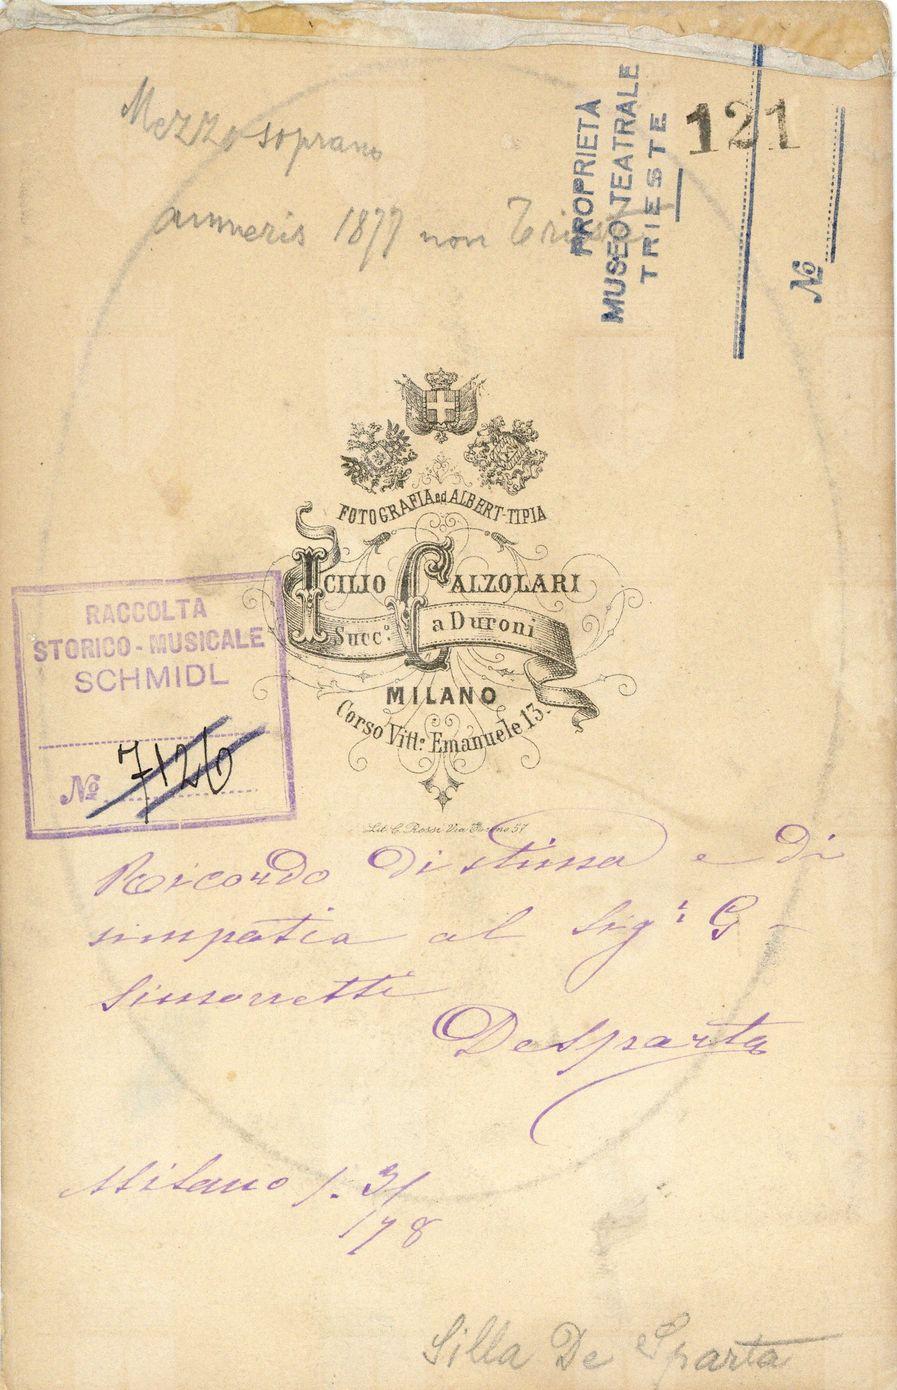 Mezzo soprano
amneris 1877 non Trieste
PROPRIETÀ
MUSEO TEATRALE
TRIESTE
121
No
FOTOGRAFIA ed ALBERT-TIPIA
ICILIO CALZOLARI
Succ.º a Duroni
MILANO
Corso Vitt.º Emanuele 13.
Lit. C. Rossi Via Torino 57
RACCOLTA
STORICO-MUSICALE
SCHMIDL
No 7126
Ricordo di stima e di
simpatia al Sig.r G
Simonetti
De Sparta
Milano 1.3/
178
Silla De Sparta